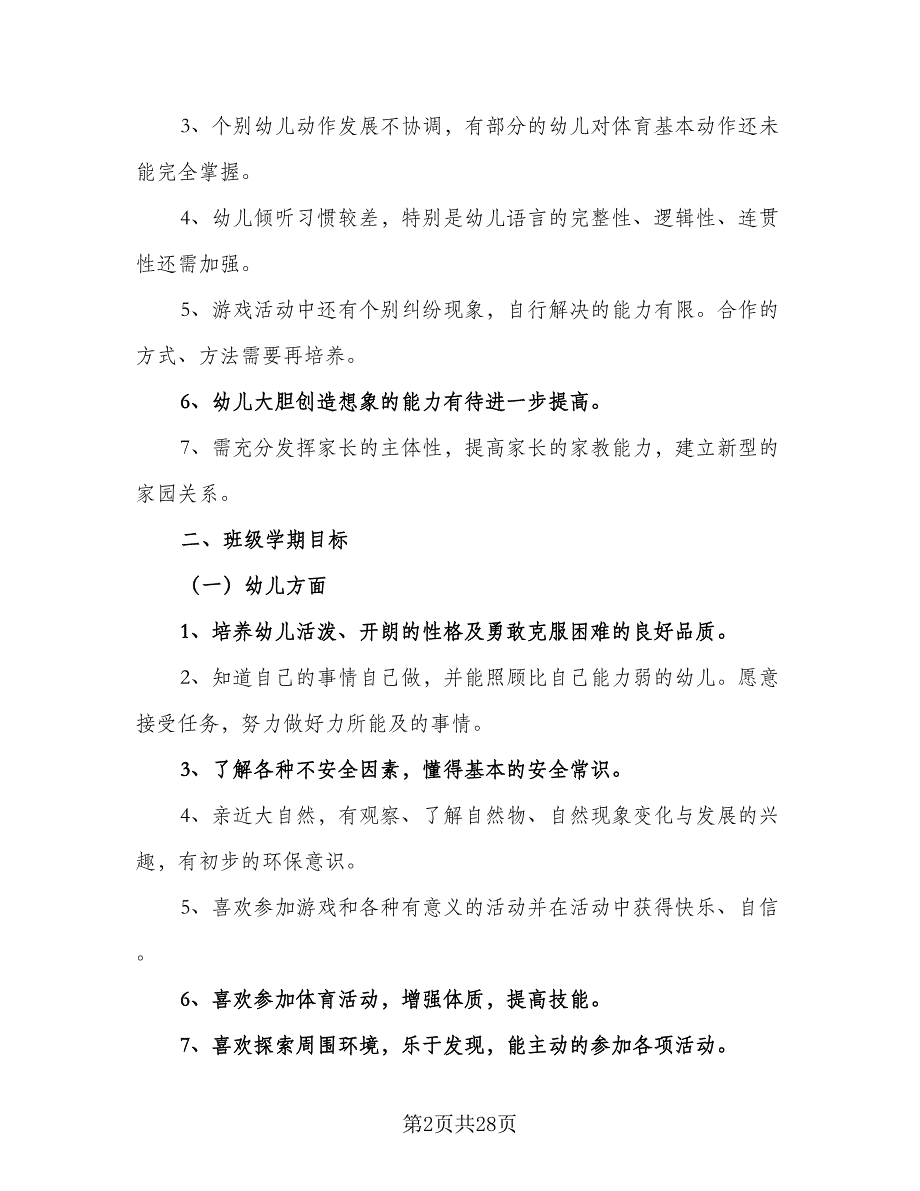 3、个别幼儿动作发展不协调，有部分的幼儿对体育基本动作还未
能完全掌握。
4、幼儿倾听习惯较差，特别是幼儿语言的完整性、逻辑性、连贯
性还需加强。
5、游戏活动中还有个别纠纷现象，自行解决的能力有限。合作的
方式、方法需要再培养。
6、幼儿大胆创造想象的能力有待进一步提高。
7、需充分发挥家长的主体性，提高家长的家教能力，建立新型的
家园关系。
二、班级学期目标
（一）幼儿方面
1、培养幼儿活泼、开朗的性格及勇敢克服困难的良好品质。
2、知道自己的事情自己做，并能照顾比自己能力弱的幼儿。愿意
接受任务，努力做好力所能及的事情。
3、了解各种不安全因素，懂得基本的安全常识。
4、亲近大自然，有观察、了解自然物、自然现象变化与发展的兴
趣，有初步的环保意识。
5、喜欢参加游戏和各种有意义的活动并在活动中获得快乐、自信
。
6、喜欢参加体育活动，增强体质，提高技能。
7、喜欢探索周围环境，乐于发现，能主动的参加各项活动。
第2页共28页